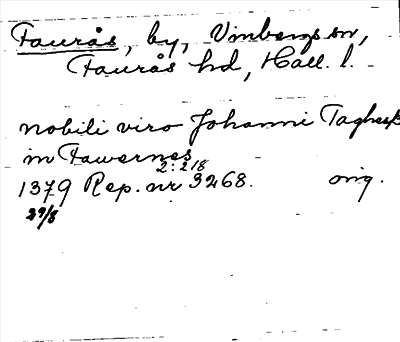 Faurås, by, Vinbergs sn,
Faurås hd, Hall. l.
nobili viro Johanni Taghesß
in Fawernes
2:218
1379 Rep. nr 3268. orig.
29/8